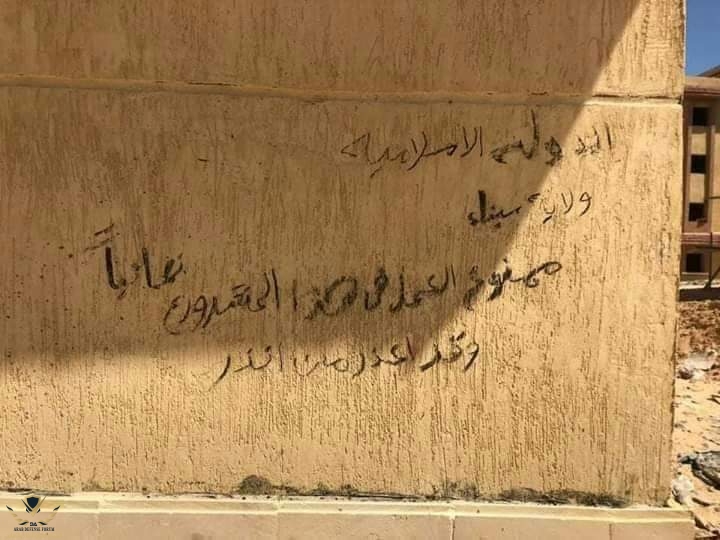 الدولة الاسلاميه
ولاية سيناء
ممنوع العمل في هذا المشروع نهاياً
وقد اعذر من انذر
ARAB DEFENSE FORUM